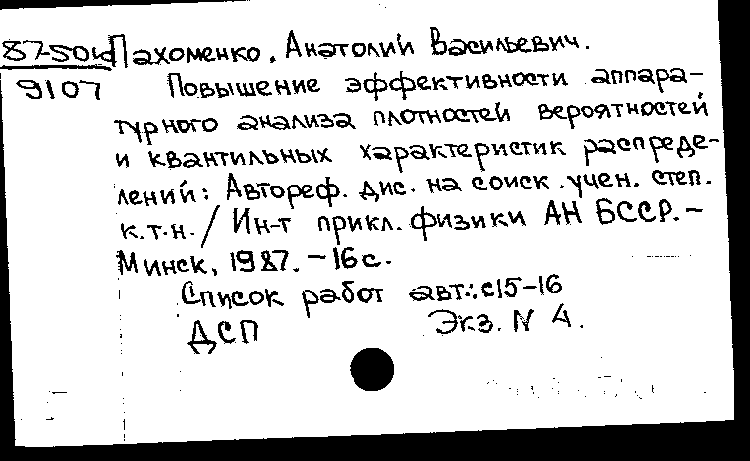 87-50и Пахоменко, Анатолий Васильевич.
9107 Повышение эффективности аппара-
турного анализа плотностей вероятностей
и квантильных характеристик распреде-
лений: Автореф. дис. на соиск. учен. степ.
к.т.н. / Ин-т прикл. физики АН БССР. -
Минск, 1987. - 16 с.
Список работ авт.: с15-16
ДСП Экз. N 4.